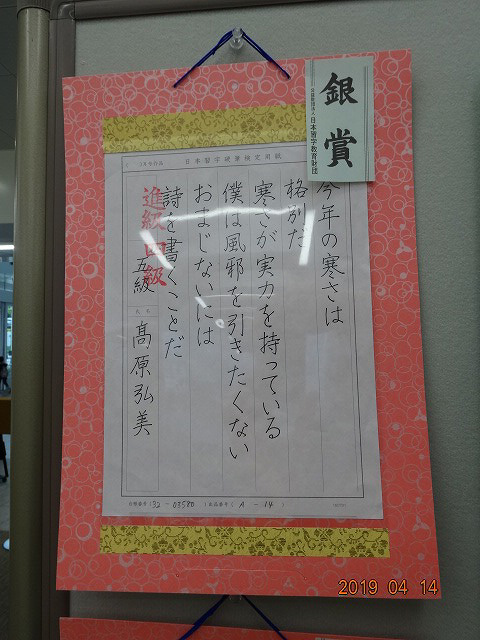 銀賞
公益財団法人 日本習字教育財団
日本習字硬筆検定用紙
今年の寒さは
格別だ
寒さが実力を持っている
僕は風邪を引きたくない
おまじないには
詩を書くことだ
進級 四級
五級
氏名
髙原弘美
32-03580
A-14
2019 04 14